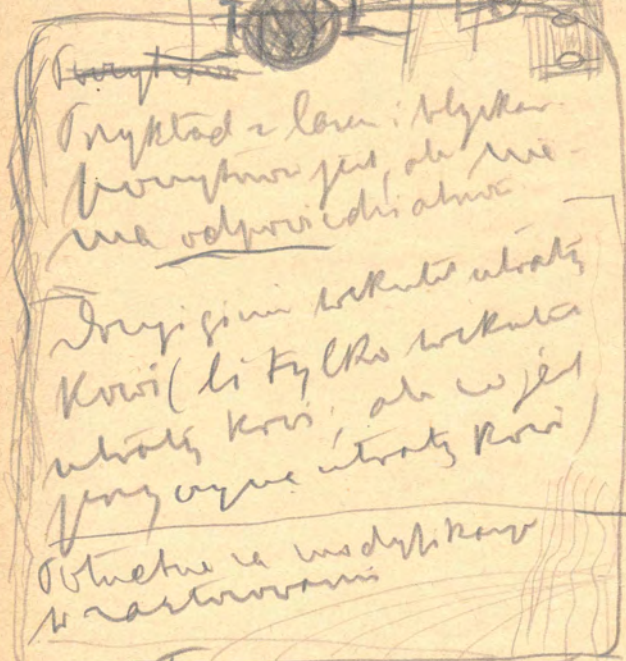 Przykład z lasu i błyskaw
pozytywne jest, ale nie
ma odpowiedzialność
Drugi ginie wskutek utraty
krwi (li tylko wskutek
utraty krwi, ale co jest
przyczyną utraty krwi)
Potrzebne są modyfikacje
w zastosowaniu